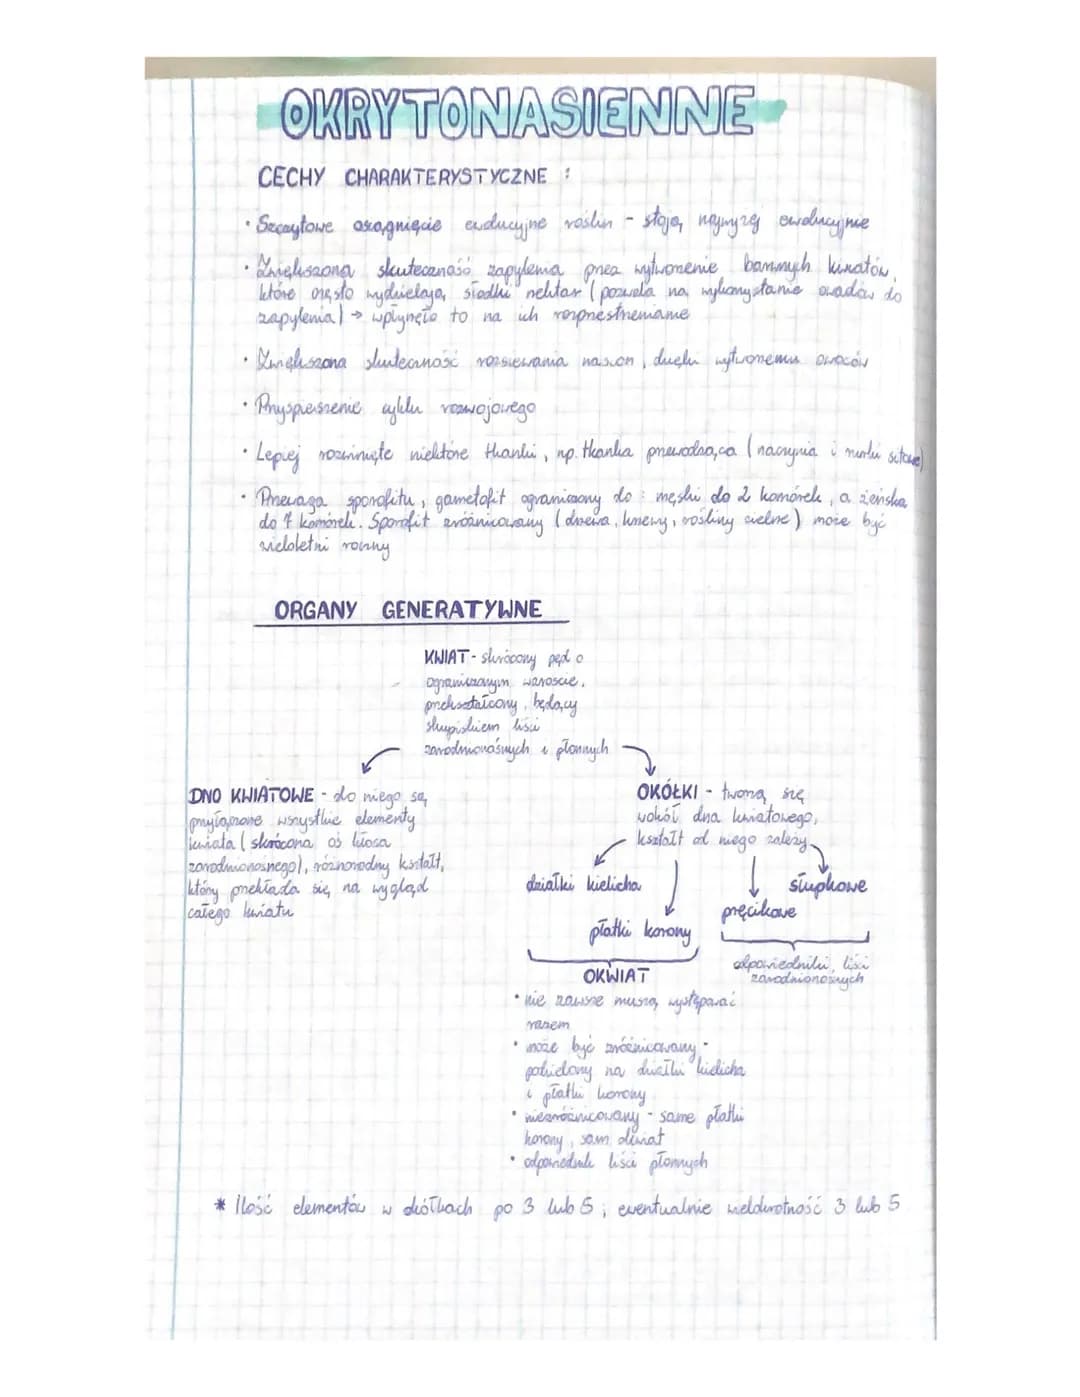 OKRYTONASIENNE
CECHY CHARAKTERYSTYCZNE :
• Szczytowe osiągnięcie ewolucyjne roślin - stoją najwyżej ewolucyjnie
• Zwiększona skuteczność zapylenia przez wytworzenie barwnych kwiatów,
które często wydzielają słodki nektar (pozwala na wykorzystanie owadów do
zapylenia) → wpłynęło to na ich rozprzestrzenianie
• Zwiększona skuteczność rozsiewania nasion, dzięki wytworzeniu owoców
• Przyspieszenie cyklu rozwojowego
• Lepiej rozwinięte niektóre tkanki, np. tkanka przewodząca (naczynia i rurki sitowe)
• Przewaga sporofitu, gametofit ograniczony do : męski do 2 komórek, a żeńska
do 7 komórek. Sporofit zróżnicowany (drzewa, krzewy, rośliny zielne) może być
wieloletni roczny
ORGANY GENERATYWNE
KWIAT - skrócony pęd o
ograniczonym wzroście,
przekształcony, będący
skupiskiem liści
zarodnionośnych i płonnych
DNO KWIATOWE - do niego są
przyłączone wszystkie elementy
kwiata (skrócona oś kłosa
zarodnionośnego), różnorodny kształt,
który przekłada się na wygląd
całego kwiatu
OKÓŁKI - tworzą się
wokół dna kwiatowego,
kształt od niego zależy
działki kielicha
płatki korony
pręcikowe
słupkowe
OKWIAT
odpowiedniki liści
zarodnionośnych
• nie zawsze muszą występować
razem
• może być zróżnicowany -
podzielony na działki kielicha
i płatki korony
• niezróżnicowany - same płatki
korony, sam okwiat
• odpowiednik liści płonnych
* Ilość elementów w okółkach po 3 lub 5 ; ewentualnie wielokrotność 3 lub 5